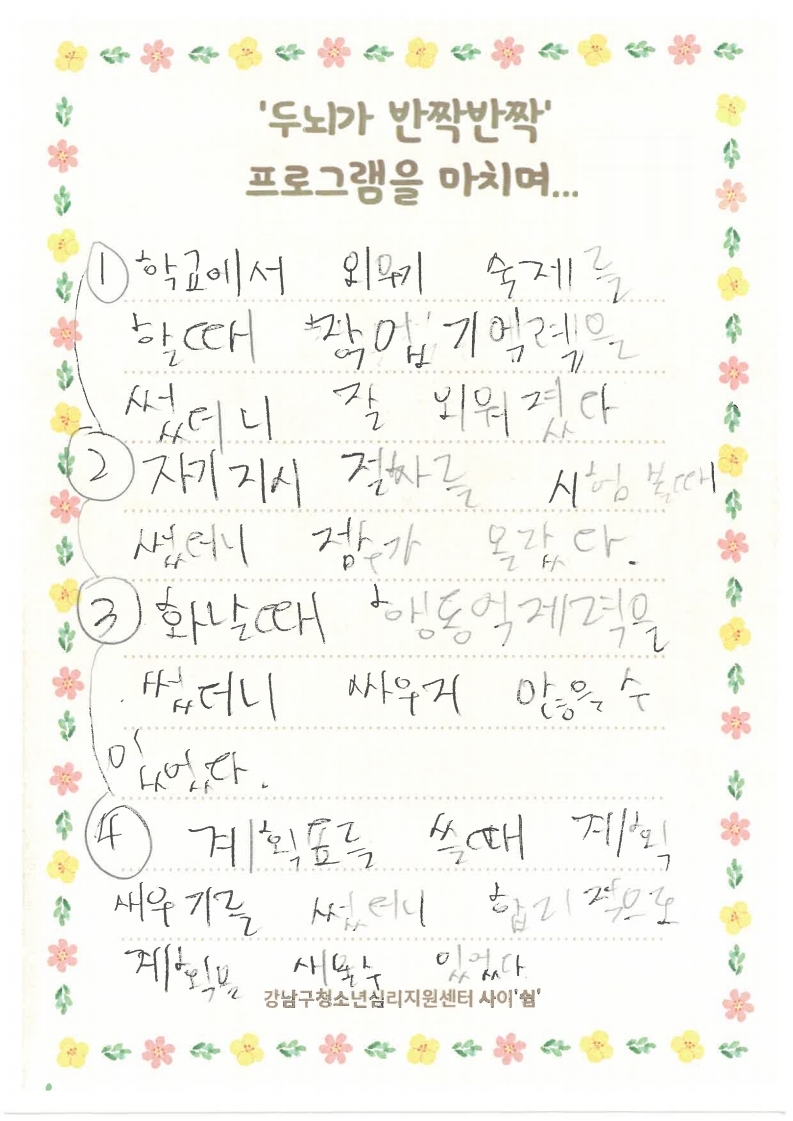 '두뇌가 반짝반짝'
프로그램을 마치며...
① 학교에서 외워기 숙제를
할때 작업기억력을
썼더니 잘 외워졌다
② 자기지시 절차를 시험볼때
썼더니 점수가 올랐다.
③ 화날때 행동억제력을
썼더니 싸우지 안을 수
있었다.
④ 계획표를 쓸때 계획
새우기를 썼더니 합리적으로
계획을 새울수 있었다
강남구청소년심리지원센터 사이'쉼'